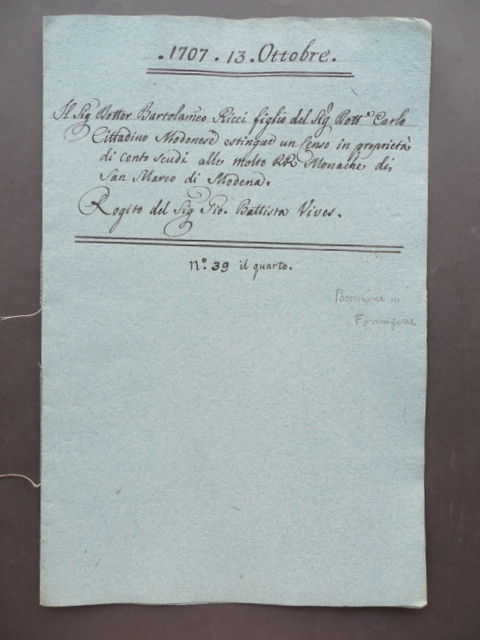 . 1707 . 13 . Ottobre .
Il Sig Dotter Bartolameo Ricci figlio del Sigr Dottr Carlo
Cittadino Modonese estingue un Censo in proprietà
di cento scudi alle molto RR Monache di
San Marco di Modena .
Rogito del Sig Gio. Battista Vives .
N.o 39 il quarto .
in
Formigine